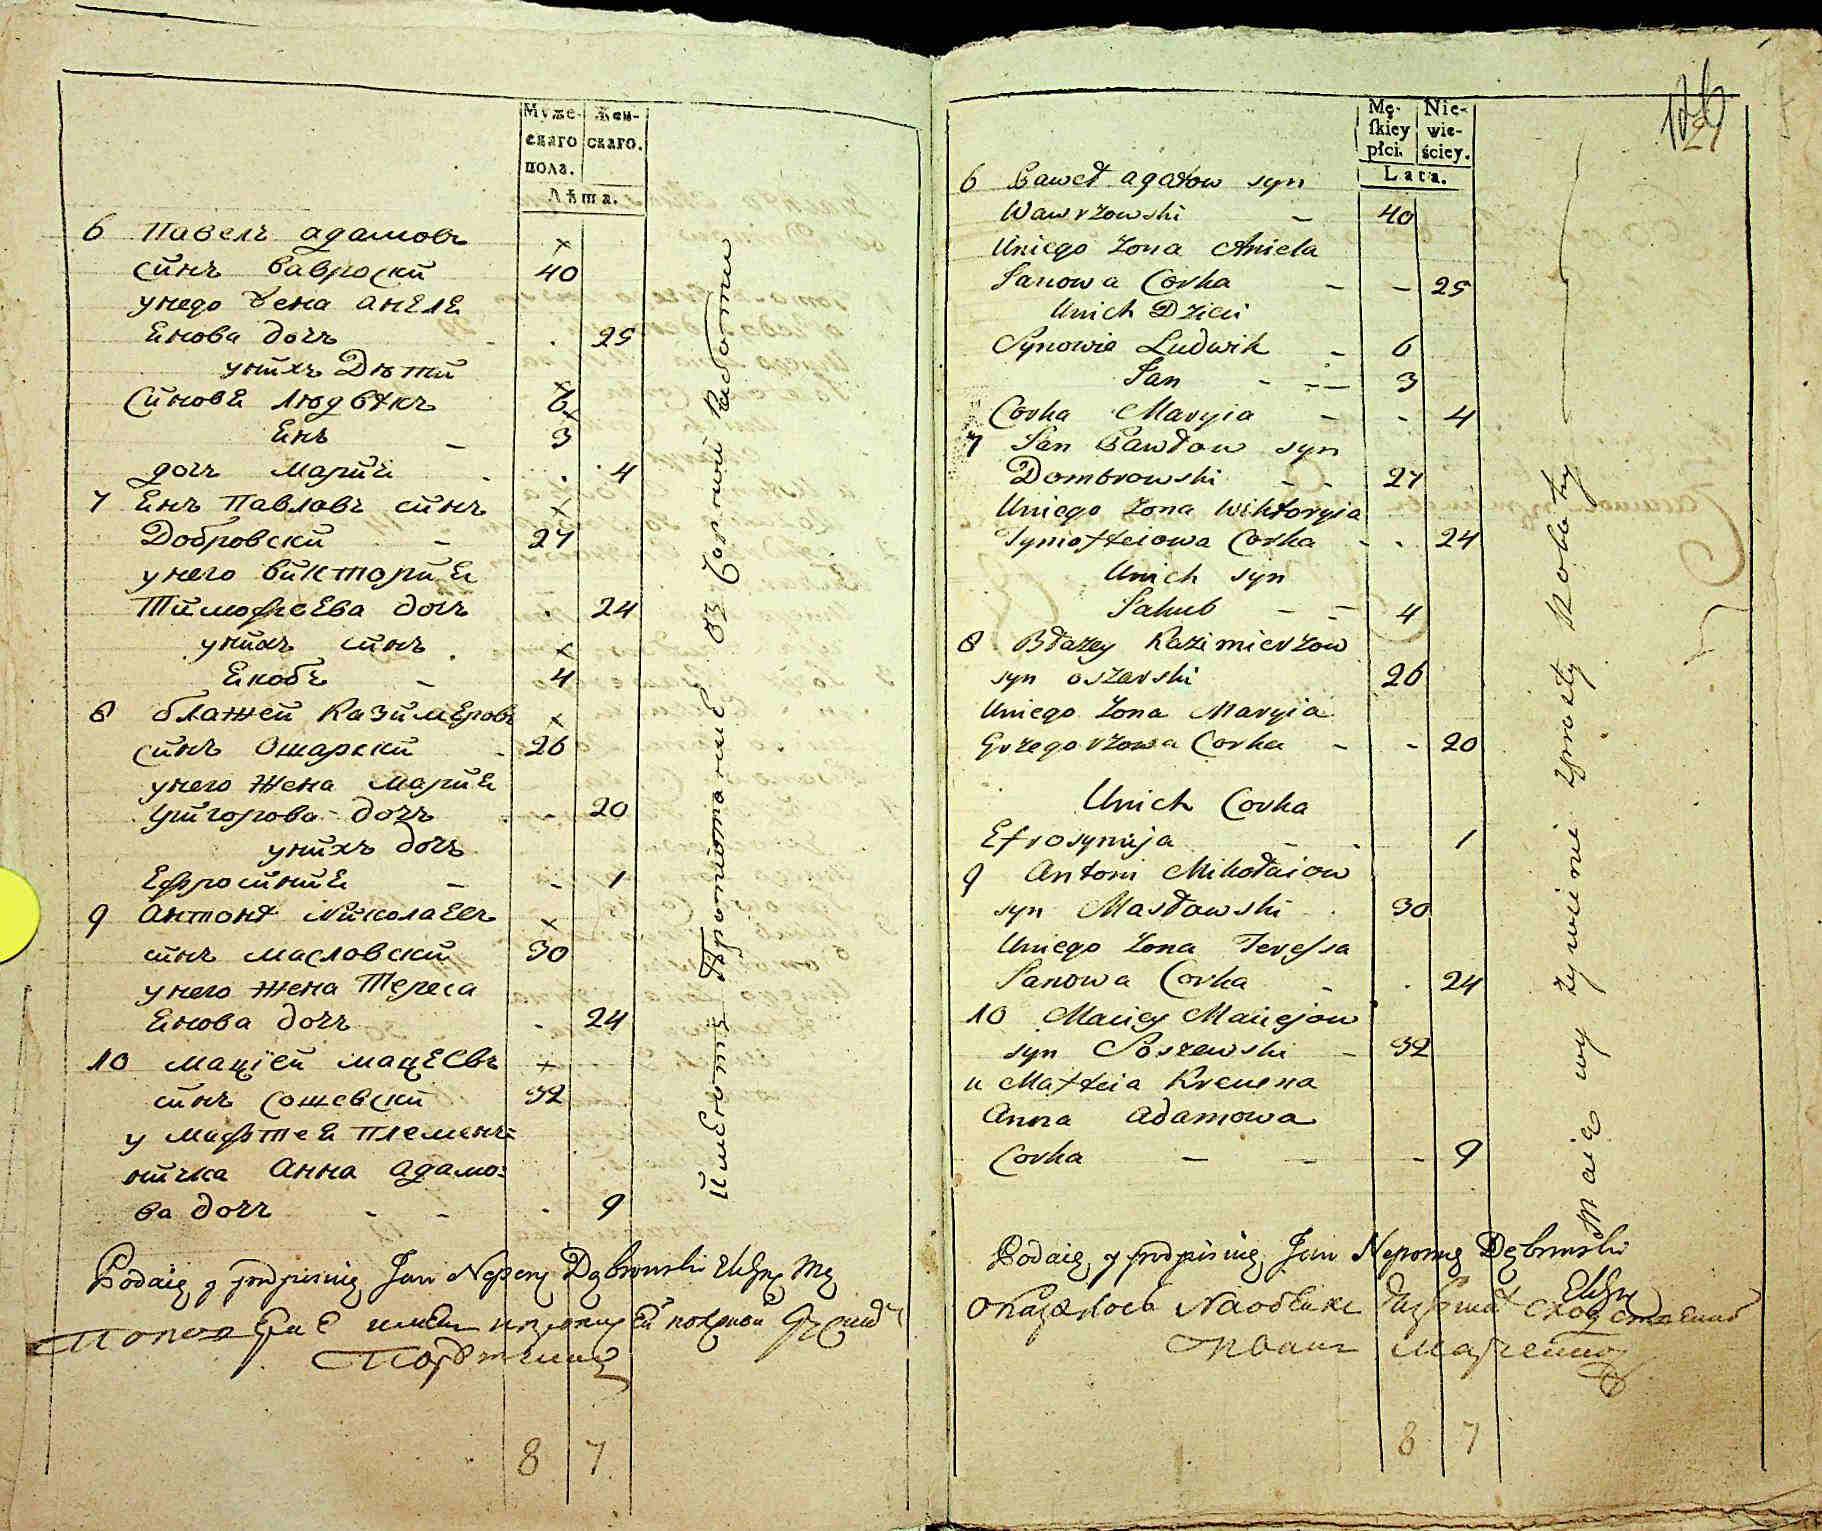 Муже-
скаго
пола.
Жен-
скаго.
Лѣта.
6 Павелъ адамовъ
синъ вавроски
40
унего жена анеле
Енова дочъ - . 25
унихъ Дѣти
Синове людвикъ 6
Енъ - 3
дочъ марие . . 4
7 Енъ Павловъ синъ
Добровски - 27
унего викторие
Тимофеева дочъ . 24
унихъ синъ
Екобъ - 4
8 блажей Казимеровъ
синъ Ошарски - 26
унего жена марие
Григорова дочъ - 20
унихъ дочъ
Ефросиние - - 1
9 Антонъ Николаевъ
синъ масловски 30
унего жена Тереса
Енова дочъ . 24
10 мацiей мацеевъ
синъ сошевски 32
у мафтея племен=
ничка Анна адамо=
ва дочъ - - . 9
имеютъ Пропитание оз Чорной работи
Podaię y podpisuię Jan Nepom Dąbrowski
8 7
Mę-
ſkiey
płci.
Nie-
wie-
ściey.
Lata.
6 Paweł agatow syn
Wawrzowski - 40
Uniego Zona Aniela
Janowa Corka - - 25
Unich Dzieci
Synowie Ludwik - 6
Jan - - - 3
Corka Maryia - - 4
7 Jan Pawłow syn
Dombrowski - - 27
Uniego Zona Wiktoryia
Tymofteiowa Corka - - 24
Unich syn
Jakub - - 4
8 Błazey Kazimierzow
syn oszarski 26
Uniego Zona Maryia
Grzegorzowa Corka - - 20
Unich Corka
Efrosynija - . 1
9 Antoni Mikołaiow
syn Masławski . 30
Uniego Zona Teressa
Janowa Corka - . 24
10 Maciey Maciejow
syn Soszewski - 32
u Mafteia Krewna
Anna adamowa
Corka - - - 9
Maią wy zywienie zprosty Roboty
Podaię y podpisuię Jan Nepomu Dąbrowski
Иванъ
8 7